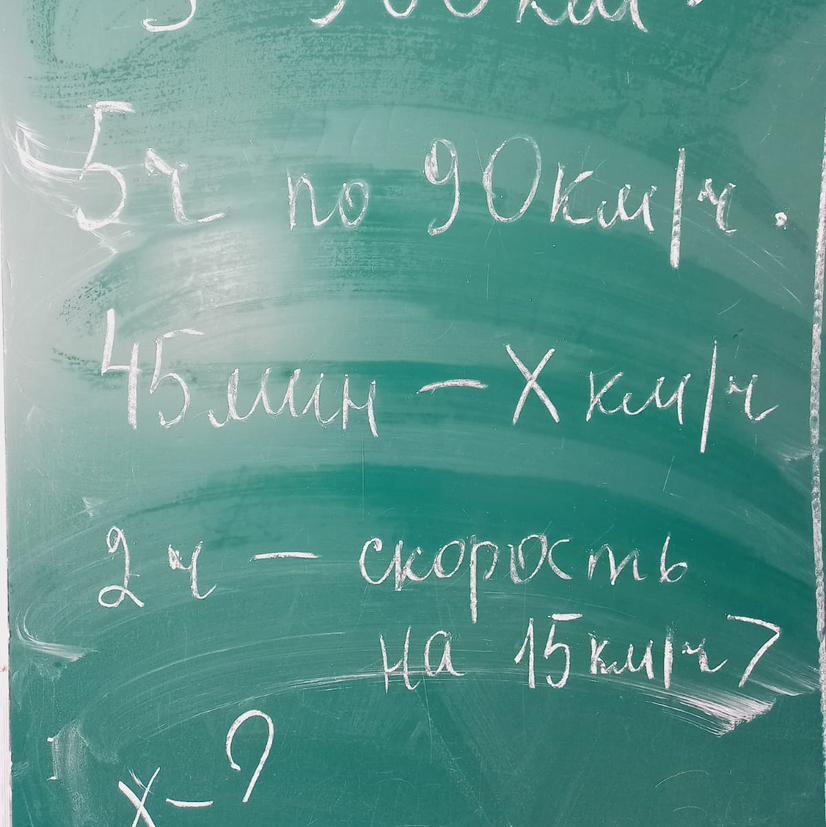 5ч по 90км/ч.
45мин – х км/ч
2ч – скорость
на 15км/ч >
х – ?